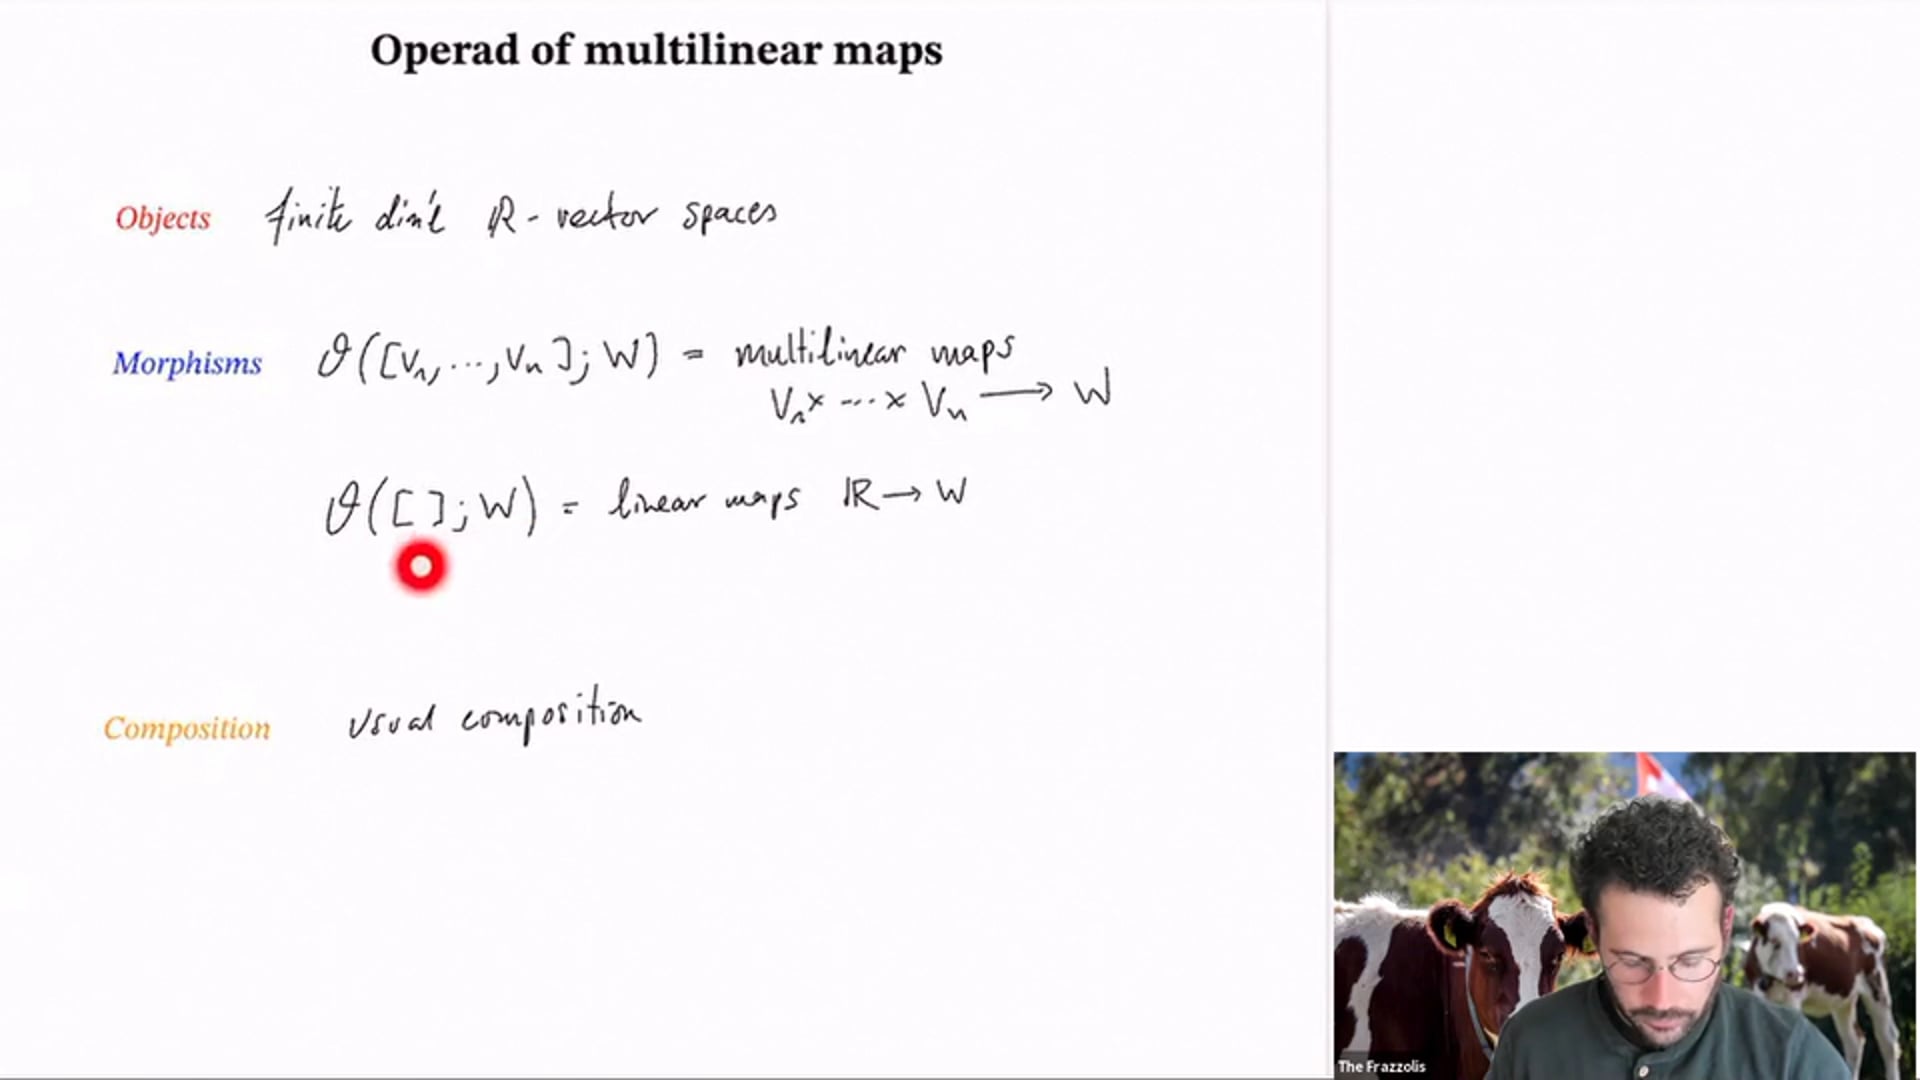 Operad of multilinear maps
Objects finite dim'l ℝ - vector spaces
Morphisms 𝒪([V₁, ..., Vₙ]; W) = multilinear maps
V₁ × ... × Vₙ → W
𝒪([ ]; W) = linear maps ℝ → W
Composition usual composition
The Frazzolis